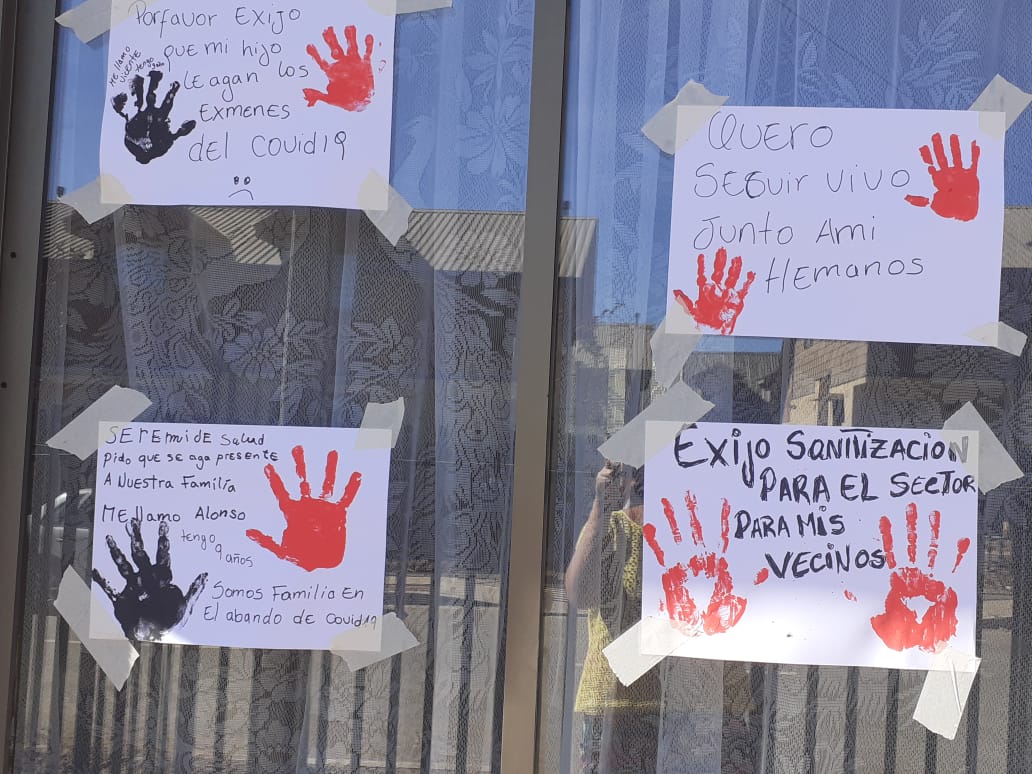 Porfavor Exijo
que mi hijo
le agan los
Exmenes
del Covid19
Me llamo
Vicente
tengo
Quero
Seguir vivo
Junto Ami
Hemanos
Seremi de Salud
Pido que se aga presente
A Nuestra Familia
Me llamo Alonso
tengo
9 años
Somos Familia En
El abando de Covid19
Exijo Sanitizacion
Para el Sector
Para mis
Vecinos